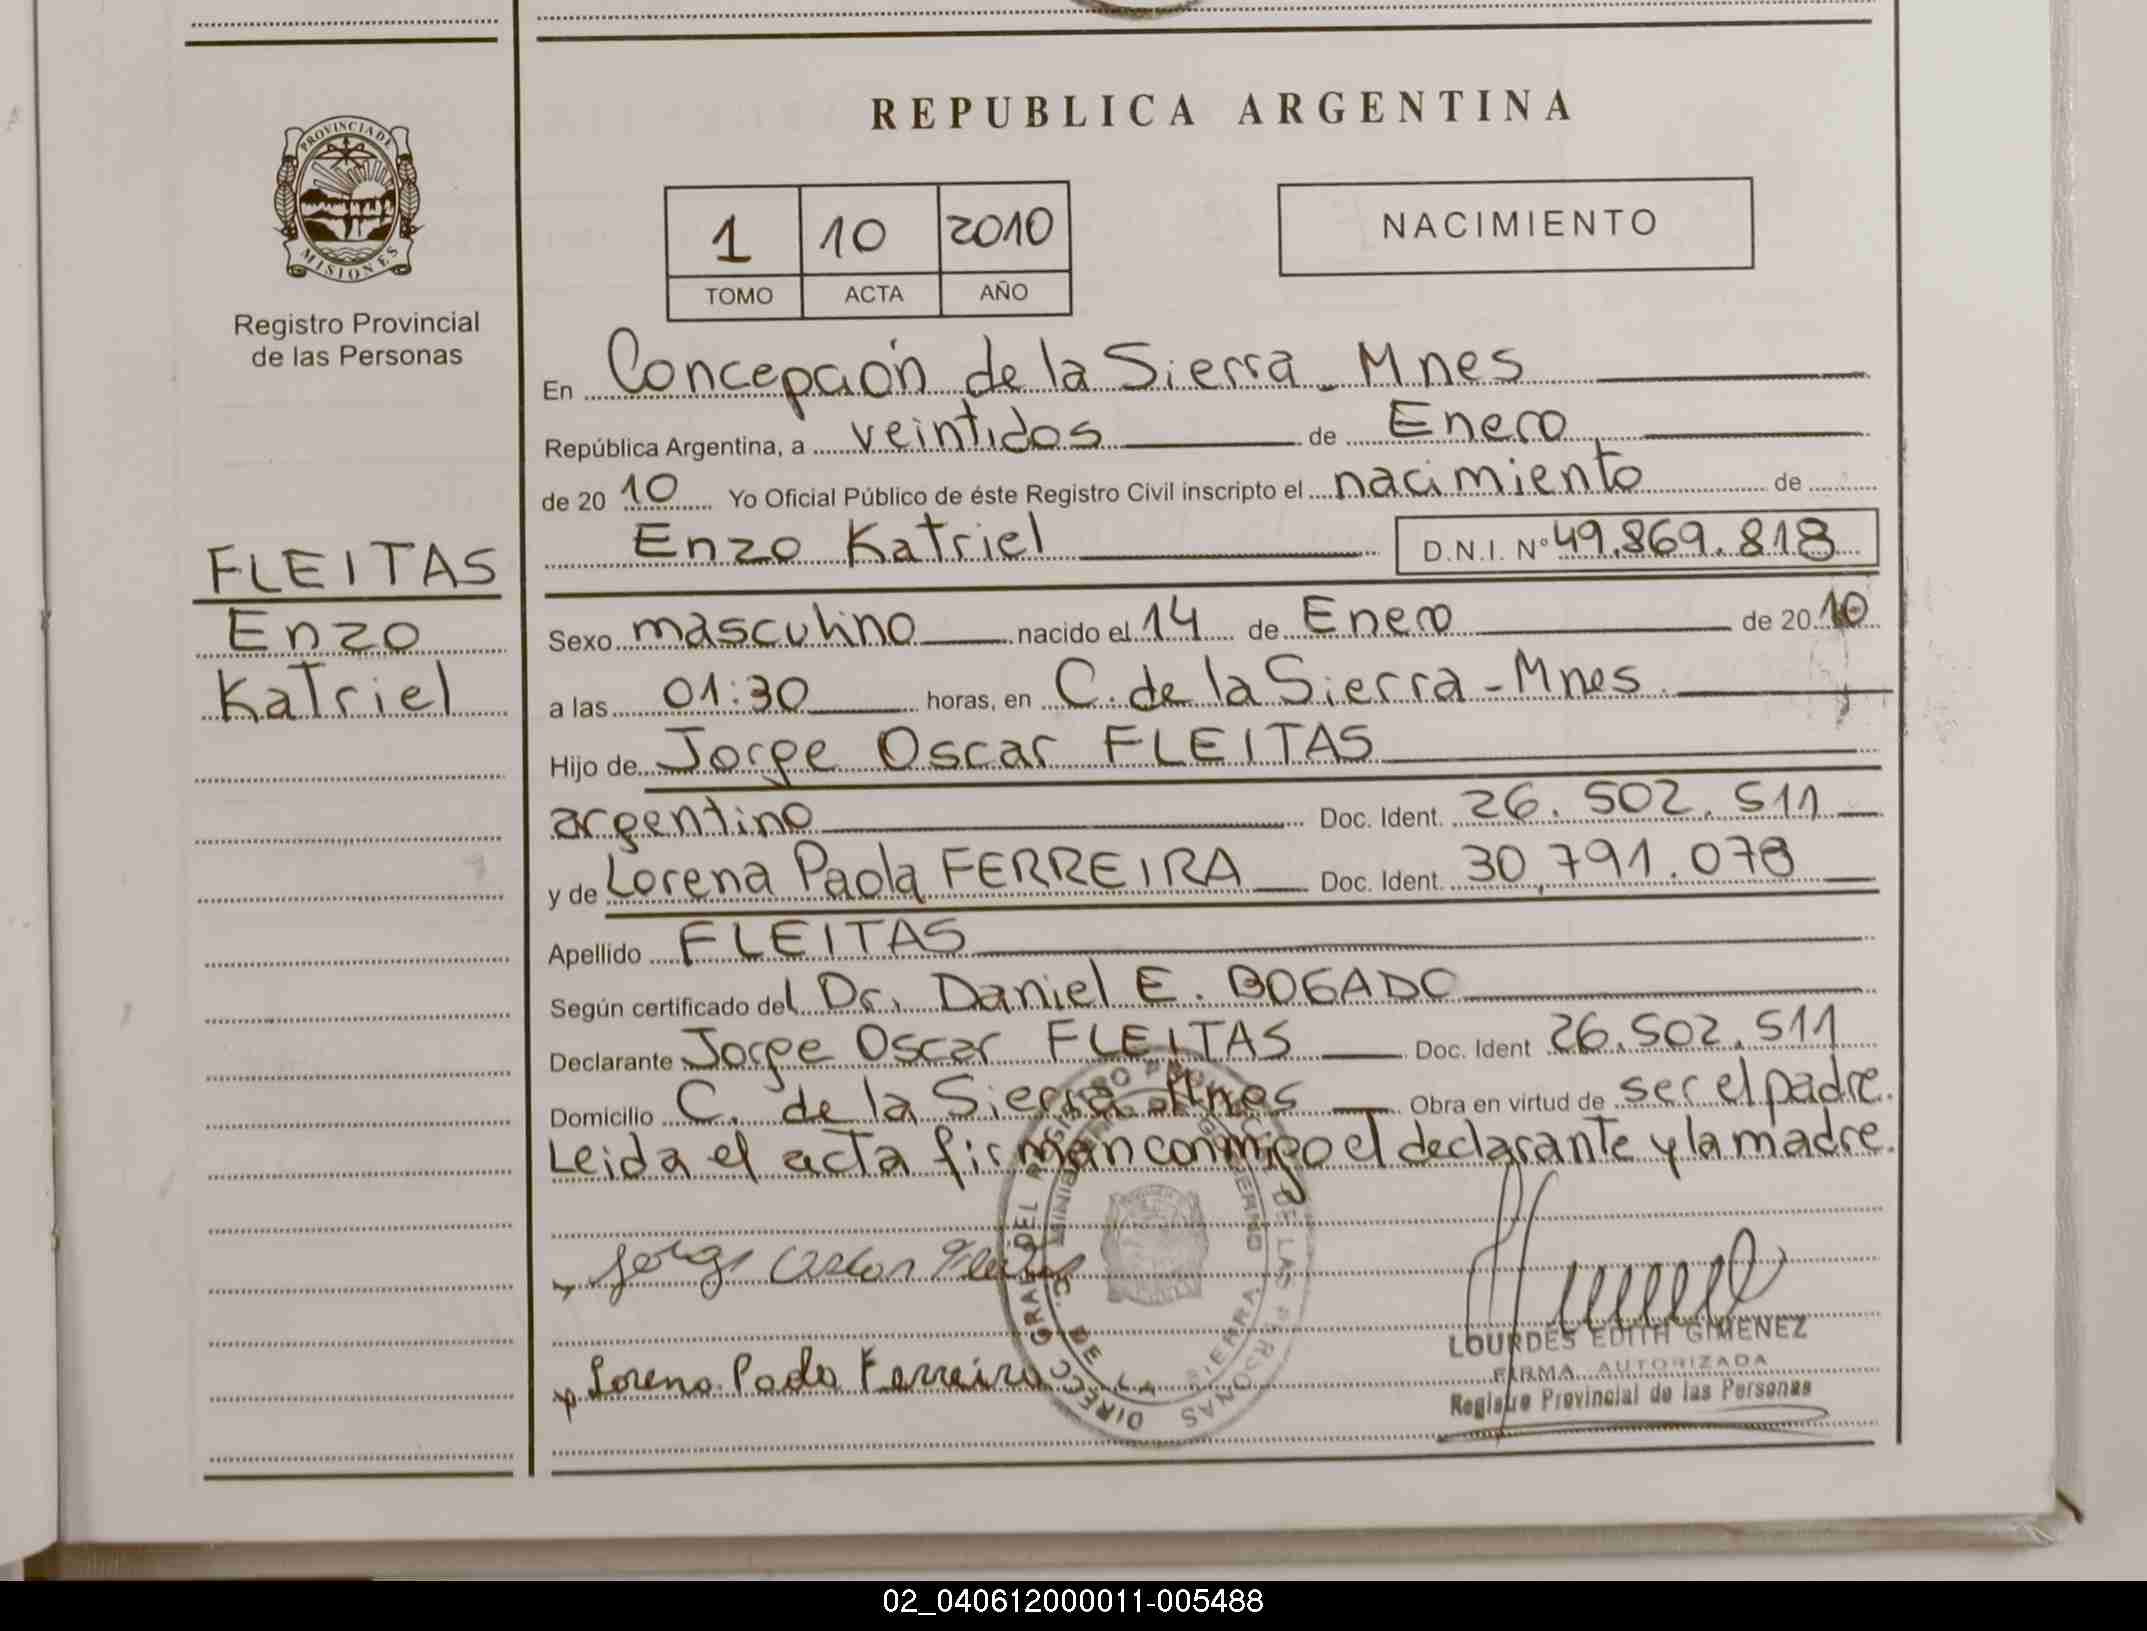 REPUBLICA ARGENTINA
PROVINCIA DE
MISIONES
Registro Provincial
de las Personas
1 10 2010
TOMO ACTA AÑO
NACIMIENTO
En Concepción de la Sierra - Mnes
República Argentina, a veintidos de Enero
de 20 10 Yo Oficial Público de éste Registro Civil inscripto el nacimiento de
Enzo Katriel D.N.I. N° 49.869.818
FLEITAS
Enzo
Katriel
Sexo masculino nacido el 14 de Enero de 20 10
a las 01:30 horas, en C. de la Sierra - Mnes
Hijo de Jorge Oscar FLEITAS
argentino Doc. Ident. 26.502.511
y de Lorena Paola FERREIRA Doc. Ident. 30.791.078
Apellido FLEITAS
Según certificado del Dr. Daniel E. BOGADO
Declarante Jorge Oscar FLEITAS Doc. Ident 26.502.511
Domicilio C. de la Sierra - Mnes Obra en virtud de ser el padre.
Leida el acta firman conmigo el declarante y la madre.
Lorena Paola Ferreira
LOURDES EDITH GIMENEZ
FIRMA AUTORIZADA
Registro Provincial de las Personas
02_040612000011-005488